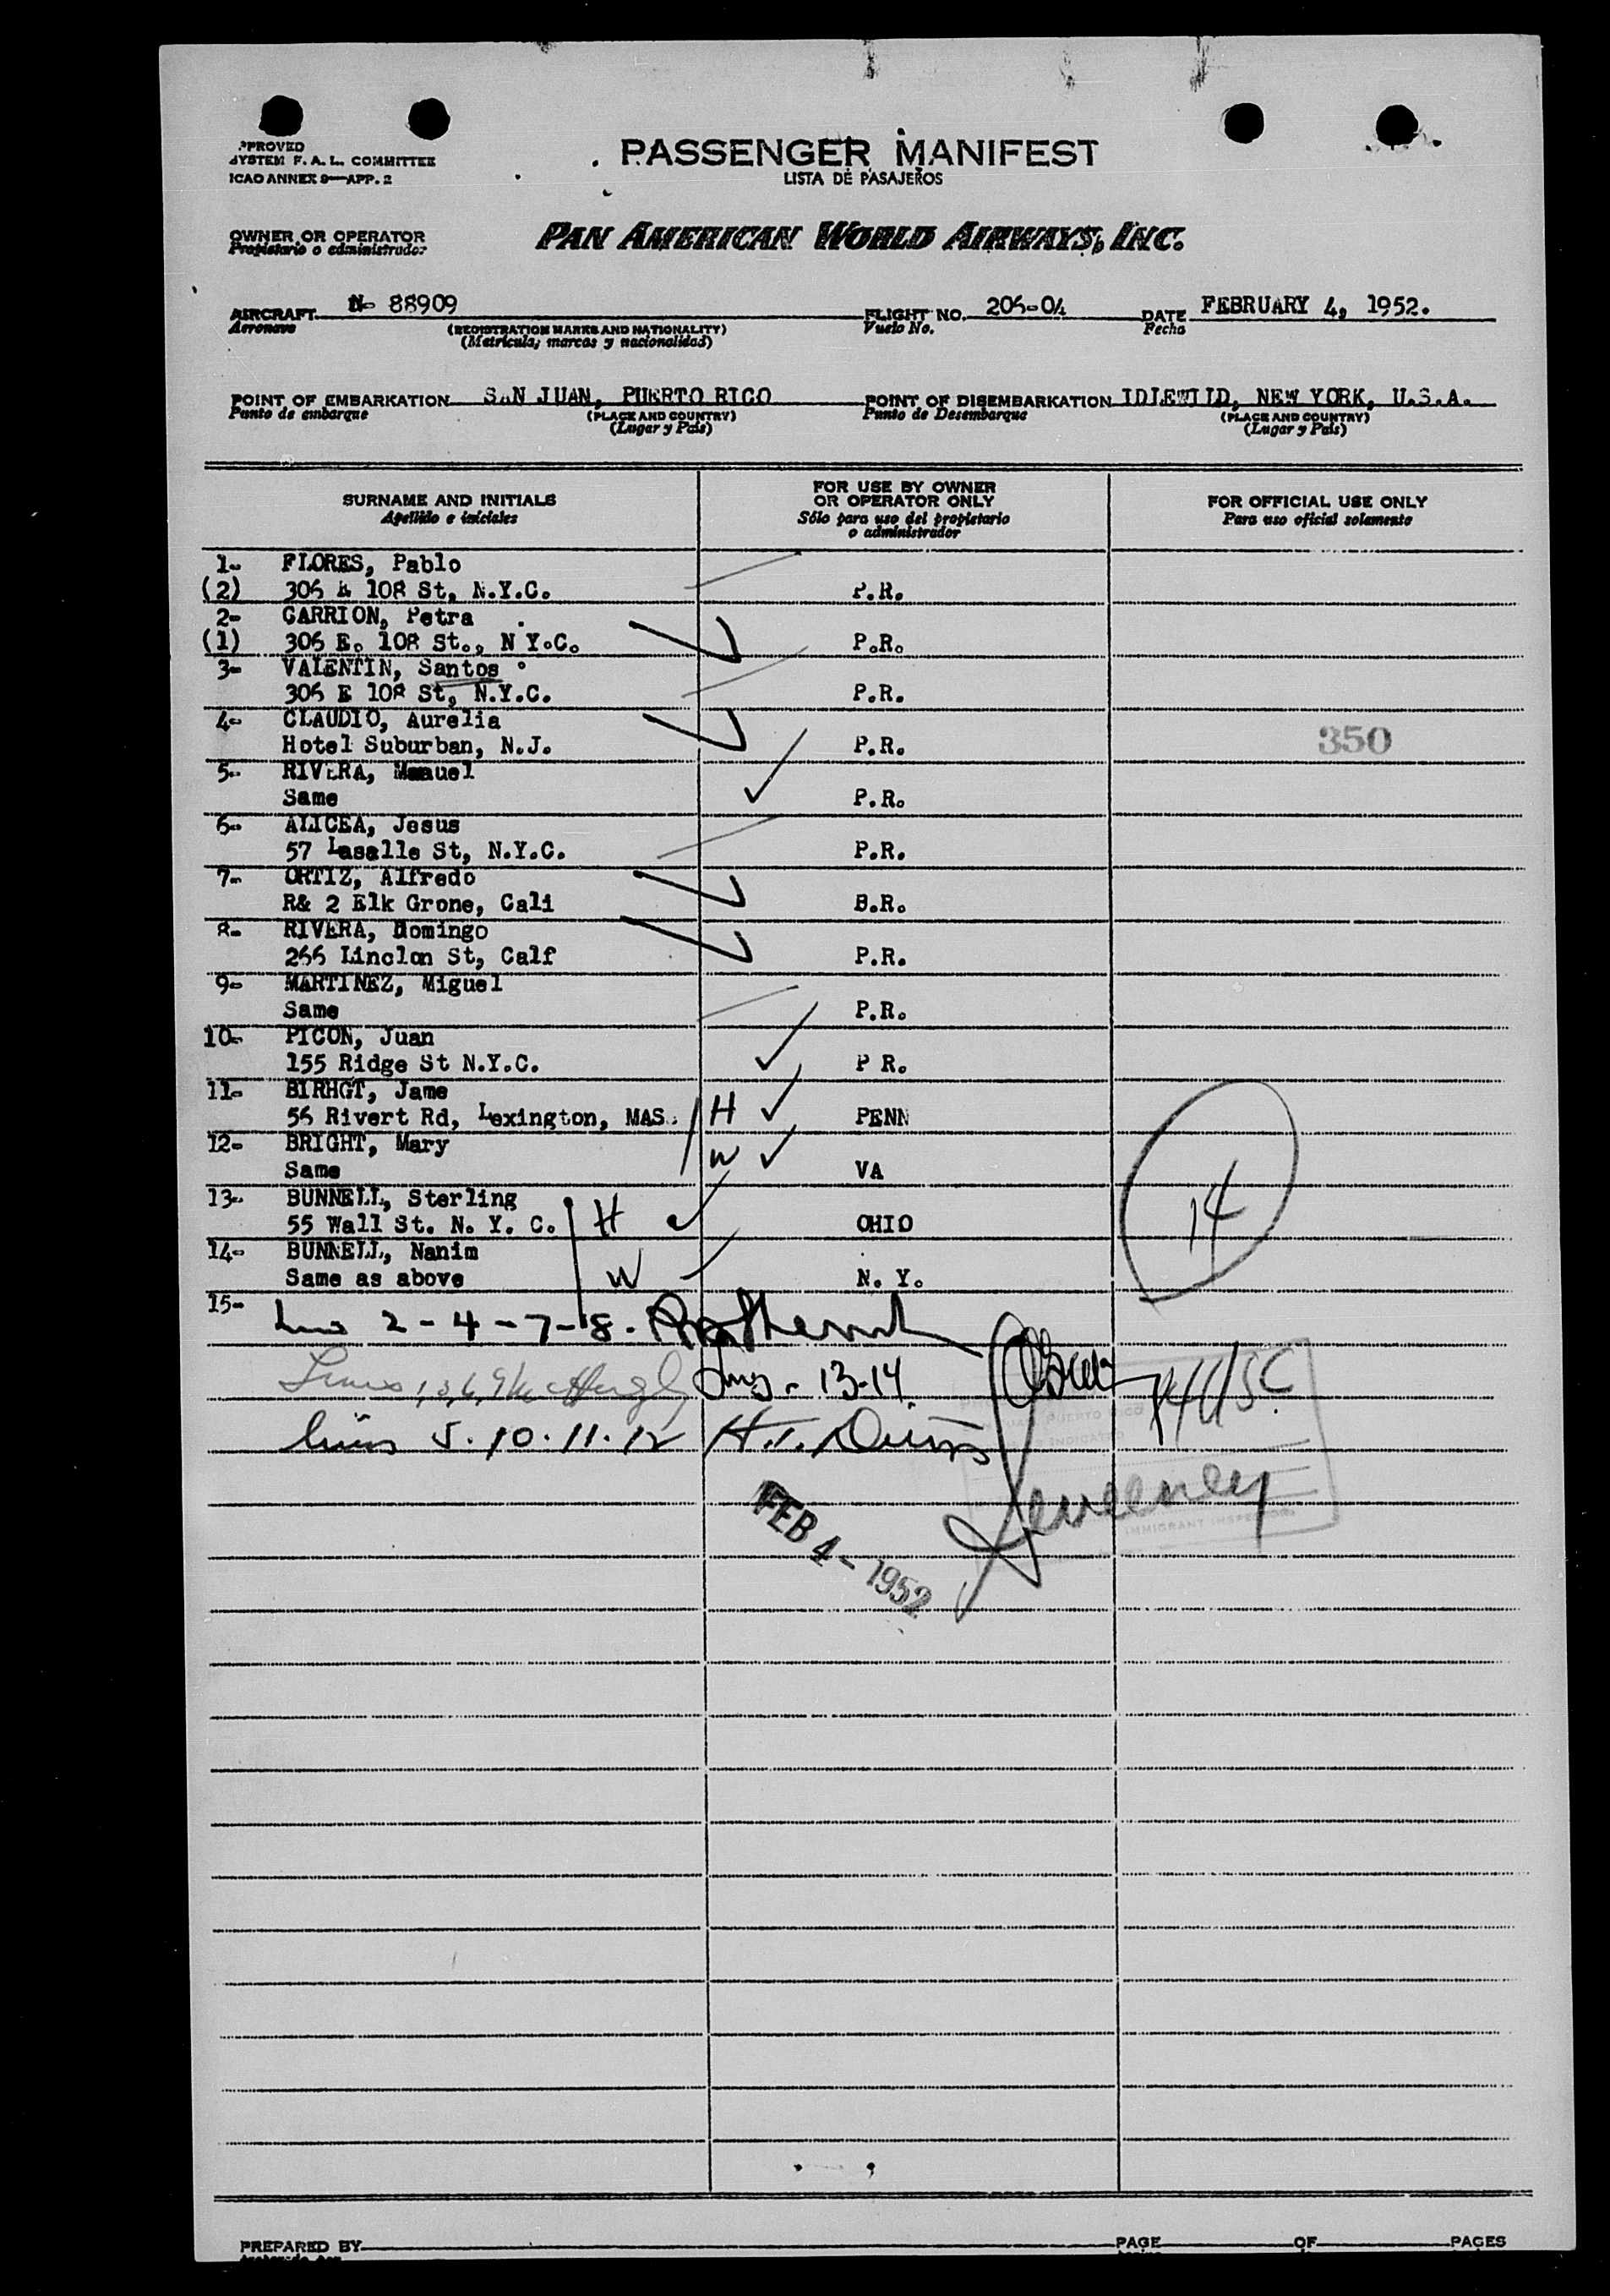 PPROVED
SYSTEM F. A. L. COMMITTEE
ICAO ANNEX 9—APP. 2
PASSENGER MANIFEST
LISTA DE PASAJEROS
OWNER OR OPERATOR
Propietario o administrador
PAN AMERICAN WORLD AIRWAYS, INC.
AIRCRAFT N- 88909 FLIGHT NO. 206-04 DATE FEBRUARY 4, 1952.
Aeronave (REGISTRATION MARKS AND NATIONALITY) Vuelo No. Fecha
(Matrícula, marcas y nacionalidad)
POINT OF EMBARKATION SAN JUAN, PUERTO RICO POINT OF DISEMBARKATION IDLEWILD, NEW YORK, U.S.A.
Punto de embarque (PLACE AND COUNTRY) Punto de Desembarque (PLACE AND COUNTRY)
(Lugar y País) (Lugar y País)
SURNAME AND INITIALS
Apellido e iniciales
FOR USE BY OWNER
OR OPERATOR ONLY
Sólo para uso del propietario
o administrador
FOR OFFICIAL USE ONLY
Para uso oficial solamente
1- FLORES, Pablo
(2) 306 E 108 St, N.Y.C. P.R.
2- CARRION, Petra
(1) 306 E. 108 St., N Y.C. P.R.
3- VALENTIN, Santos
306 E 108 St, N.Y.C. P.R.
4- CLAUDIO, Aurelia
Hotel Suburban, N.J. P.R. 350
5- RIVERA, Manuel
Same P.R.
6- ALICEA, Jesus
57 Lasalle St, N.Y.C. P.R.
7- ORTIZ, Alfredo
R& 2 Elk Grone, Cali B.R.
8- RIVERA, Domingo
266 Linclon St, Calf P.R.
9- MARTINEZ, Miguel
Same P.R.
10- PICON, Juan
155 Ridge St N.Y.C. P R.
11- BIRHGT, Jame
56 Rivert Rd, Lexington, MAS. H PENN
12- BRIGHT, Mary
Same W VA
13- BUNNELL, Sterling
55 Wall St. N. Y. C. H OHIO 14
14- BUNNELL, Nanim
Same as above W N. Y.
15-
2-4-7-8.
Lines 1,3,6,9 Lines - 13-14
Lines 5.10.11.12 H.T.
Sweeney
IMMIGRANT INSPECTOR
FEB 4 - 1952
PREPARED BY PAGE OF PAGES